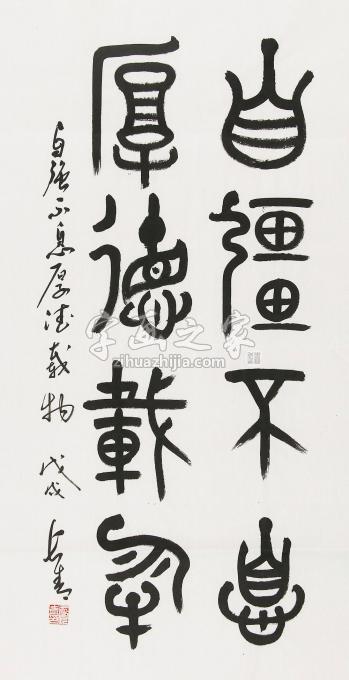 自彊不息
厚德載物
自强不息厚德載物 戊戌
字画之家
zihuazhijia.com